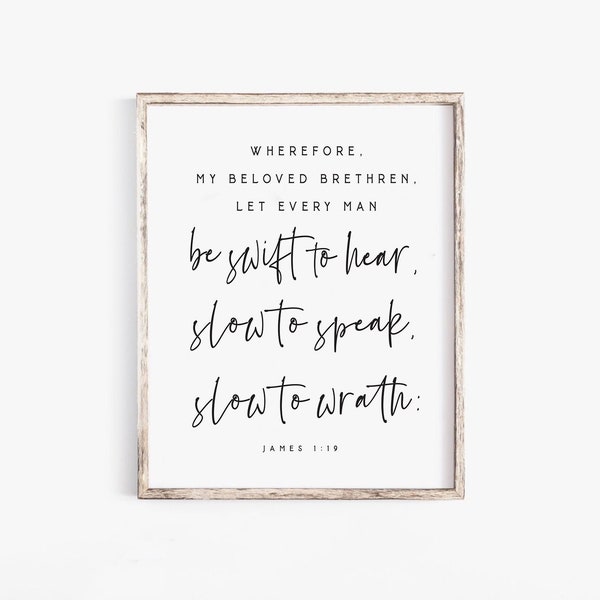 WHEREFORE,
MY BELOVED BRETHREN,
LET EVERY MAN
be swift to hear,
slow to speak,
slow to wrath:
JAMES 1:19